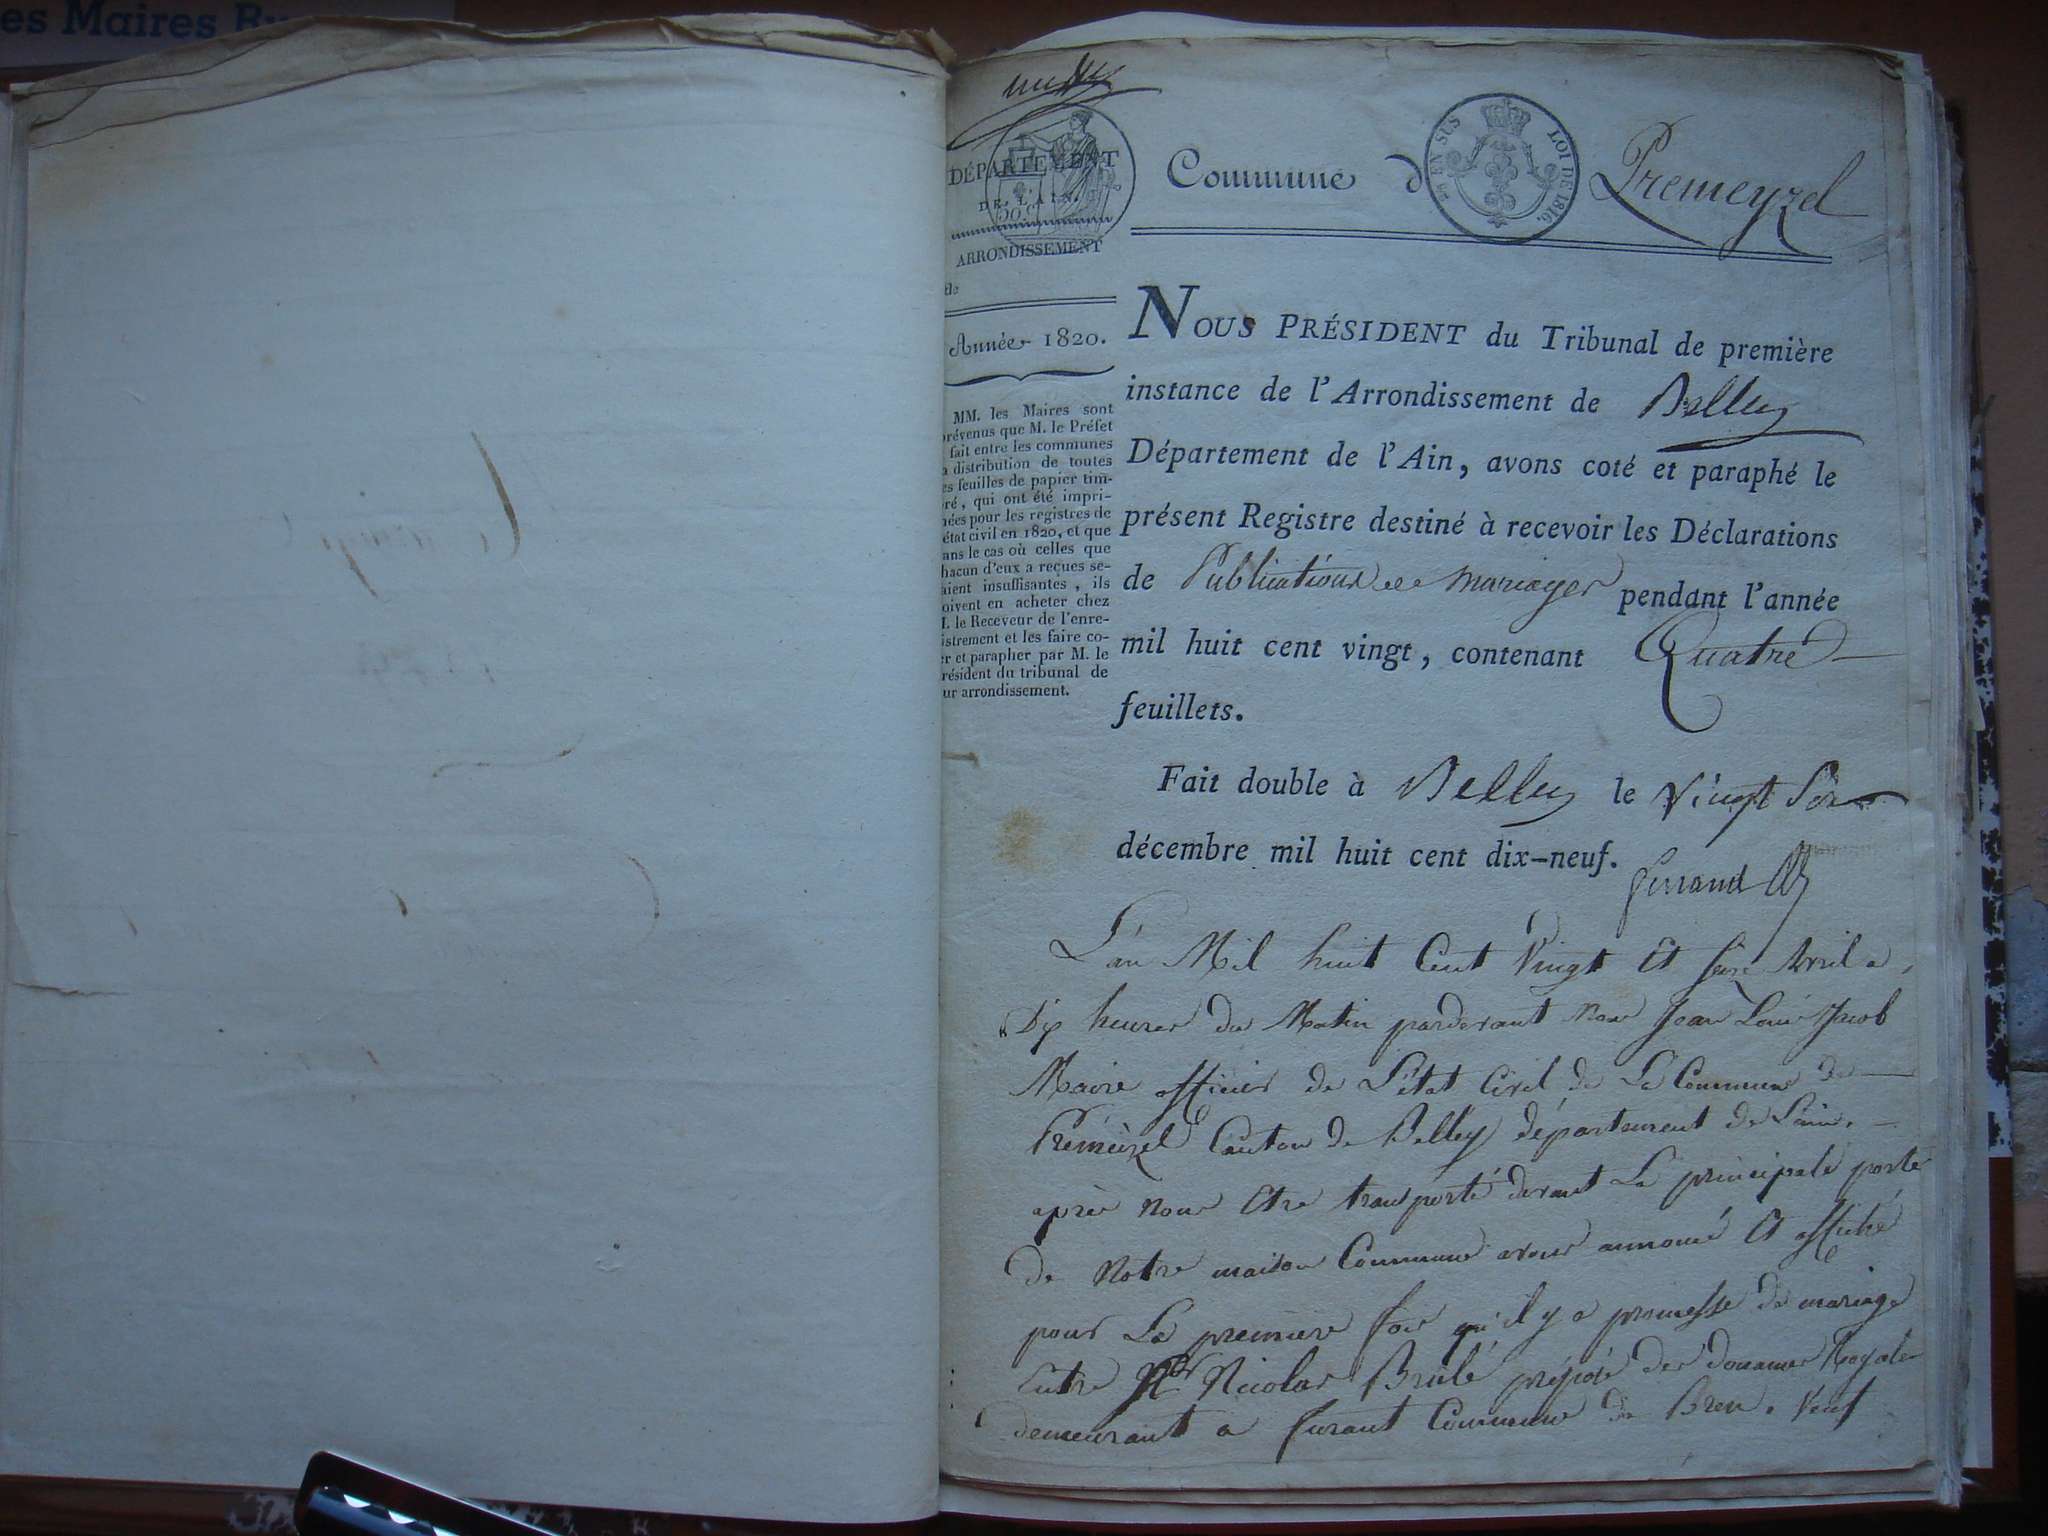 es Maires Ru
DÉPARTEMENT
DE L'AIN.
50 c
ARRONDISSEMENT
de
Année 1820.
MM. les Maires sont
prévenus que M. le Préfet
fait entre les communes
a distribution de toutes
es feuilles de papier tim-
ré, qui ont été impri-
mées pour les registres de
état civil en 1820, et que
ans le cas où celles que
hacun d'eux a reçues se-
aient insuffisantes, ils
oivent en acheter chez
M. le Receveur de l'enre-
istrement et les faire co-
er et parapher par M. le
résident du tribunal de
ur arrondissement.
Commune d Premeyzel
EN SUS LOI DE 1816.
NOUS PRÉSIDENT du Tribunal de première
instance de l'Arrondissement de Belley
Département de l'Ain, avons coté et paraphé le
présent Registre destiné à recevoir les Déclarations
de Publications de mariages pendant l'année
mil huit cent vingt, contenant Quatre
feuillets.
Fait double à Belley le Vingt Six
décembre mil huit cent dix-neuf.
L'an Mil huit Cent Vingt Et seize Avril a
Dix heures du Matin pardevant Nous Jean Louis Jacob
Maire officier de L'état Civil de La Commune de
Prémeizel Canton de Belley département de L'ain.
après nous Etre transporté devant La principale porte
de Notre maison Commune avons annoncé Et affiché
pour La premiere fois qu'il y a promesse de mariage
Entre Nicolas Brulé préposé des douanes Royales
demeurant a furant Commune de Bren. Veuf